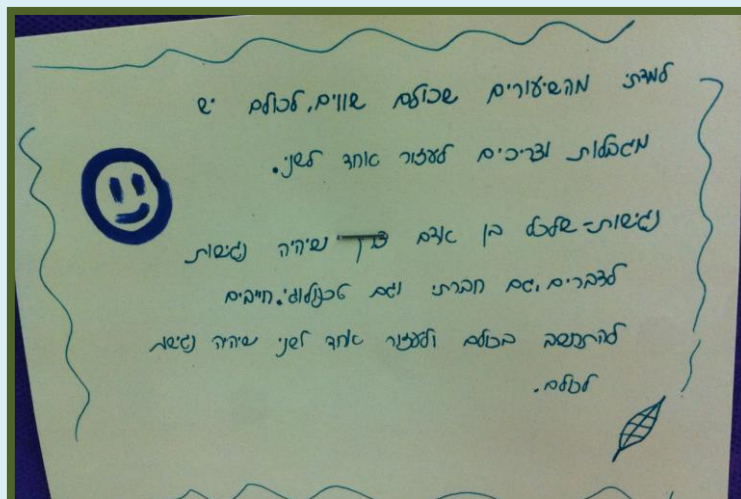 למדתי מהשיעורים שכולם שווים, לכולם יש
מגבלות וצריכים לעזור אחד לשני.
נגישות- שלכל בן אדם צריך שיהיה נגישות
לדברים, גם חברתי וגם טכנולוגי. חייבים
להתחשב בכולם ולעזור אחד לשני שיהיה נגישות
לכולם.